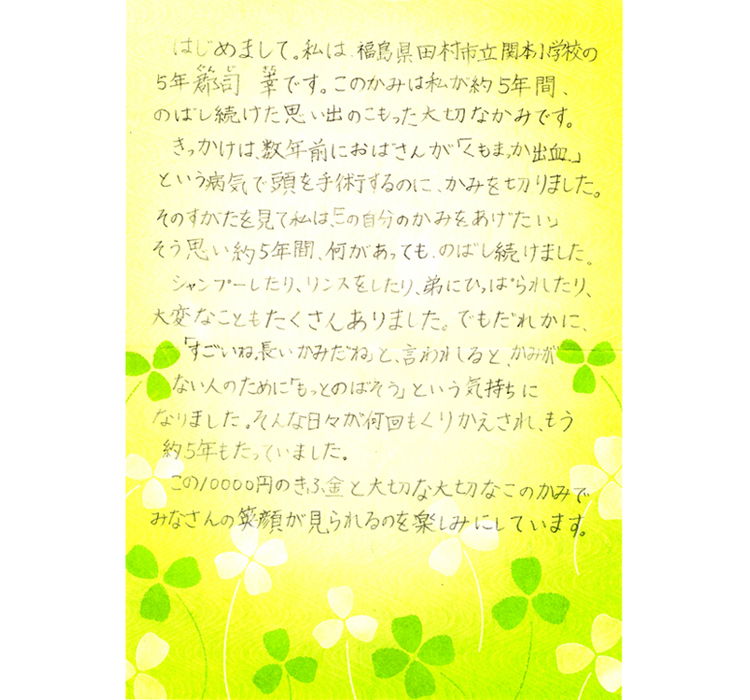 はじめまして。私は、福島県田村市立関本小学校の
5年郡司 幸です。このかみは私が約5年間、
のばし続けた思い出のこもった大切なかみです。
きっかけは、数年前におばさんが「くもまっか出血」
という病気で頭を手術するのに、かみを切りました。
そのすがたを見て私は、「この自分のかみをあげたい」
そう思い約5年間、何があっても、のばし続けました。
シャンプーしたり、リンスをしたり、弟にひっぱられたり、
大変なこともたくさんありました。でもだれかに、
「すごいね。長いかみだね」と、言われると、かみが
ない人のために「もっとのばそう」という気持ちに
なりました。そんな日々が何回もくりかえされ、もう
約5年もたっていました。
この10000円のきふ金と大切な大切なこのかみで
みなさんの笑顔が見られるのを楽しみにしています。